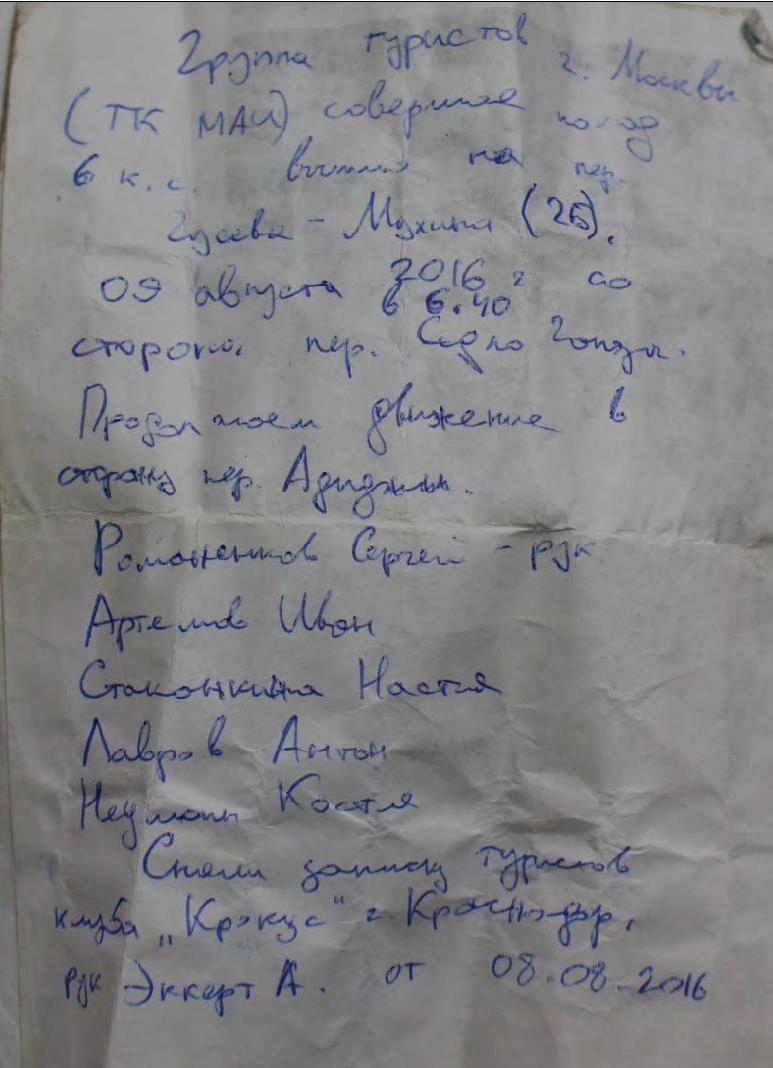 Группа туристов г. Москвы
(ТК МАИ) совершая поход
6 к.с. вышла на пер.
Гусева - Мухина (2Б).
09 августа 2016 г со
в 6.40
стороны пер. Седло Гонды.
Продолжаем движение в
сторону пер. Адиджны.
Романенков Сергей - рук
Артемов Иван
Стаконкина Настя
Лавров Антон
Неумоин Костя
Сняли записку туристов
клуба „Крокус" г. Краснодар,
рук Эккерт А. от 08.08.2016